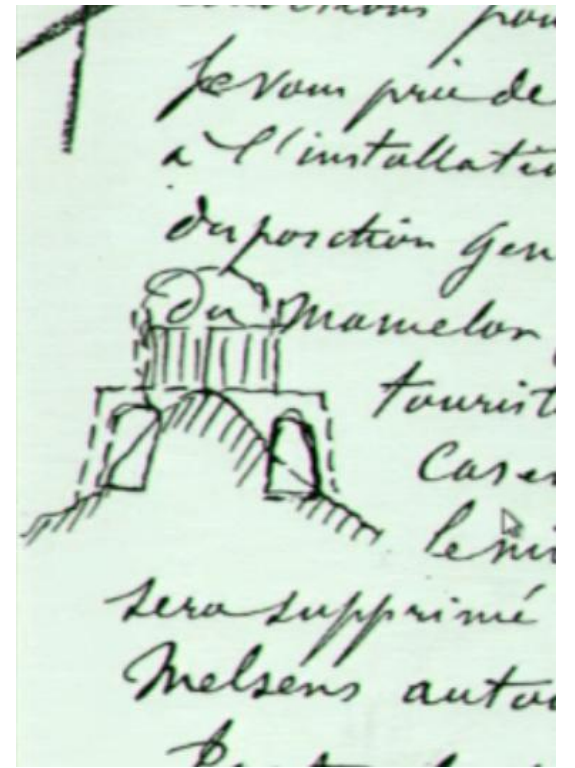 pou
Je vous prie de
a l'installatio
disposition Gen
du mamelon
tourist
Caser
le ni
sera supprimé
Melsens autou